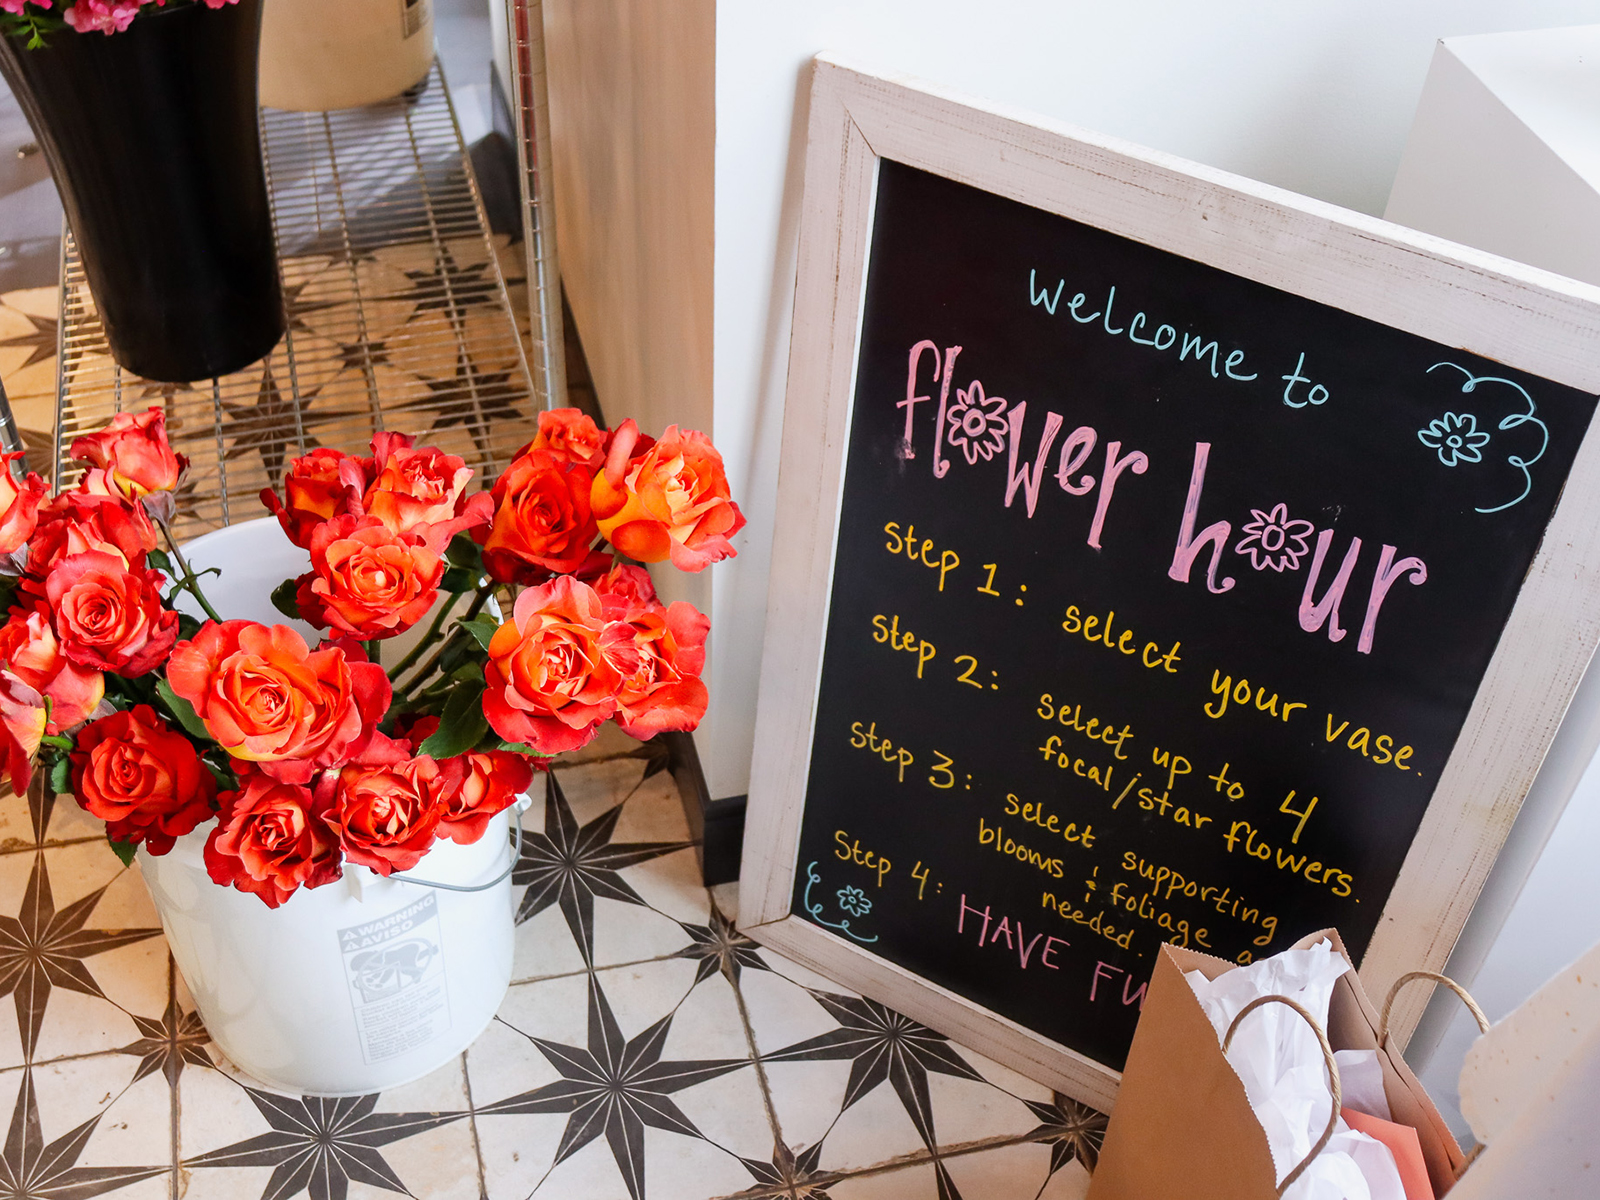 welcome to
flower hour
Step 1: select your vase.
Step 2: select up to 4
focal/star flowers.
Step 3: select supporting
blooms & foliage a
needed.
Step 4: HAVE FU
WARNING
AVISO